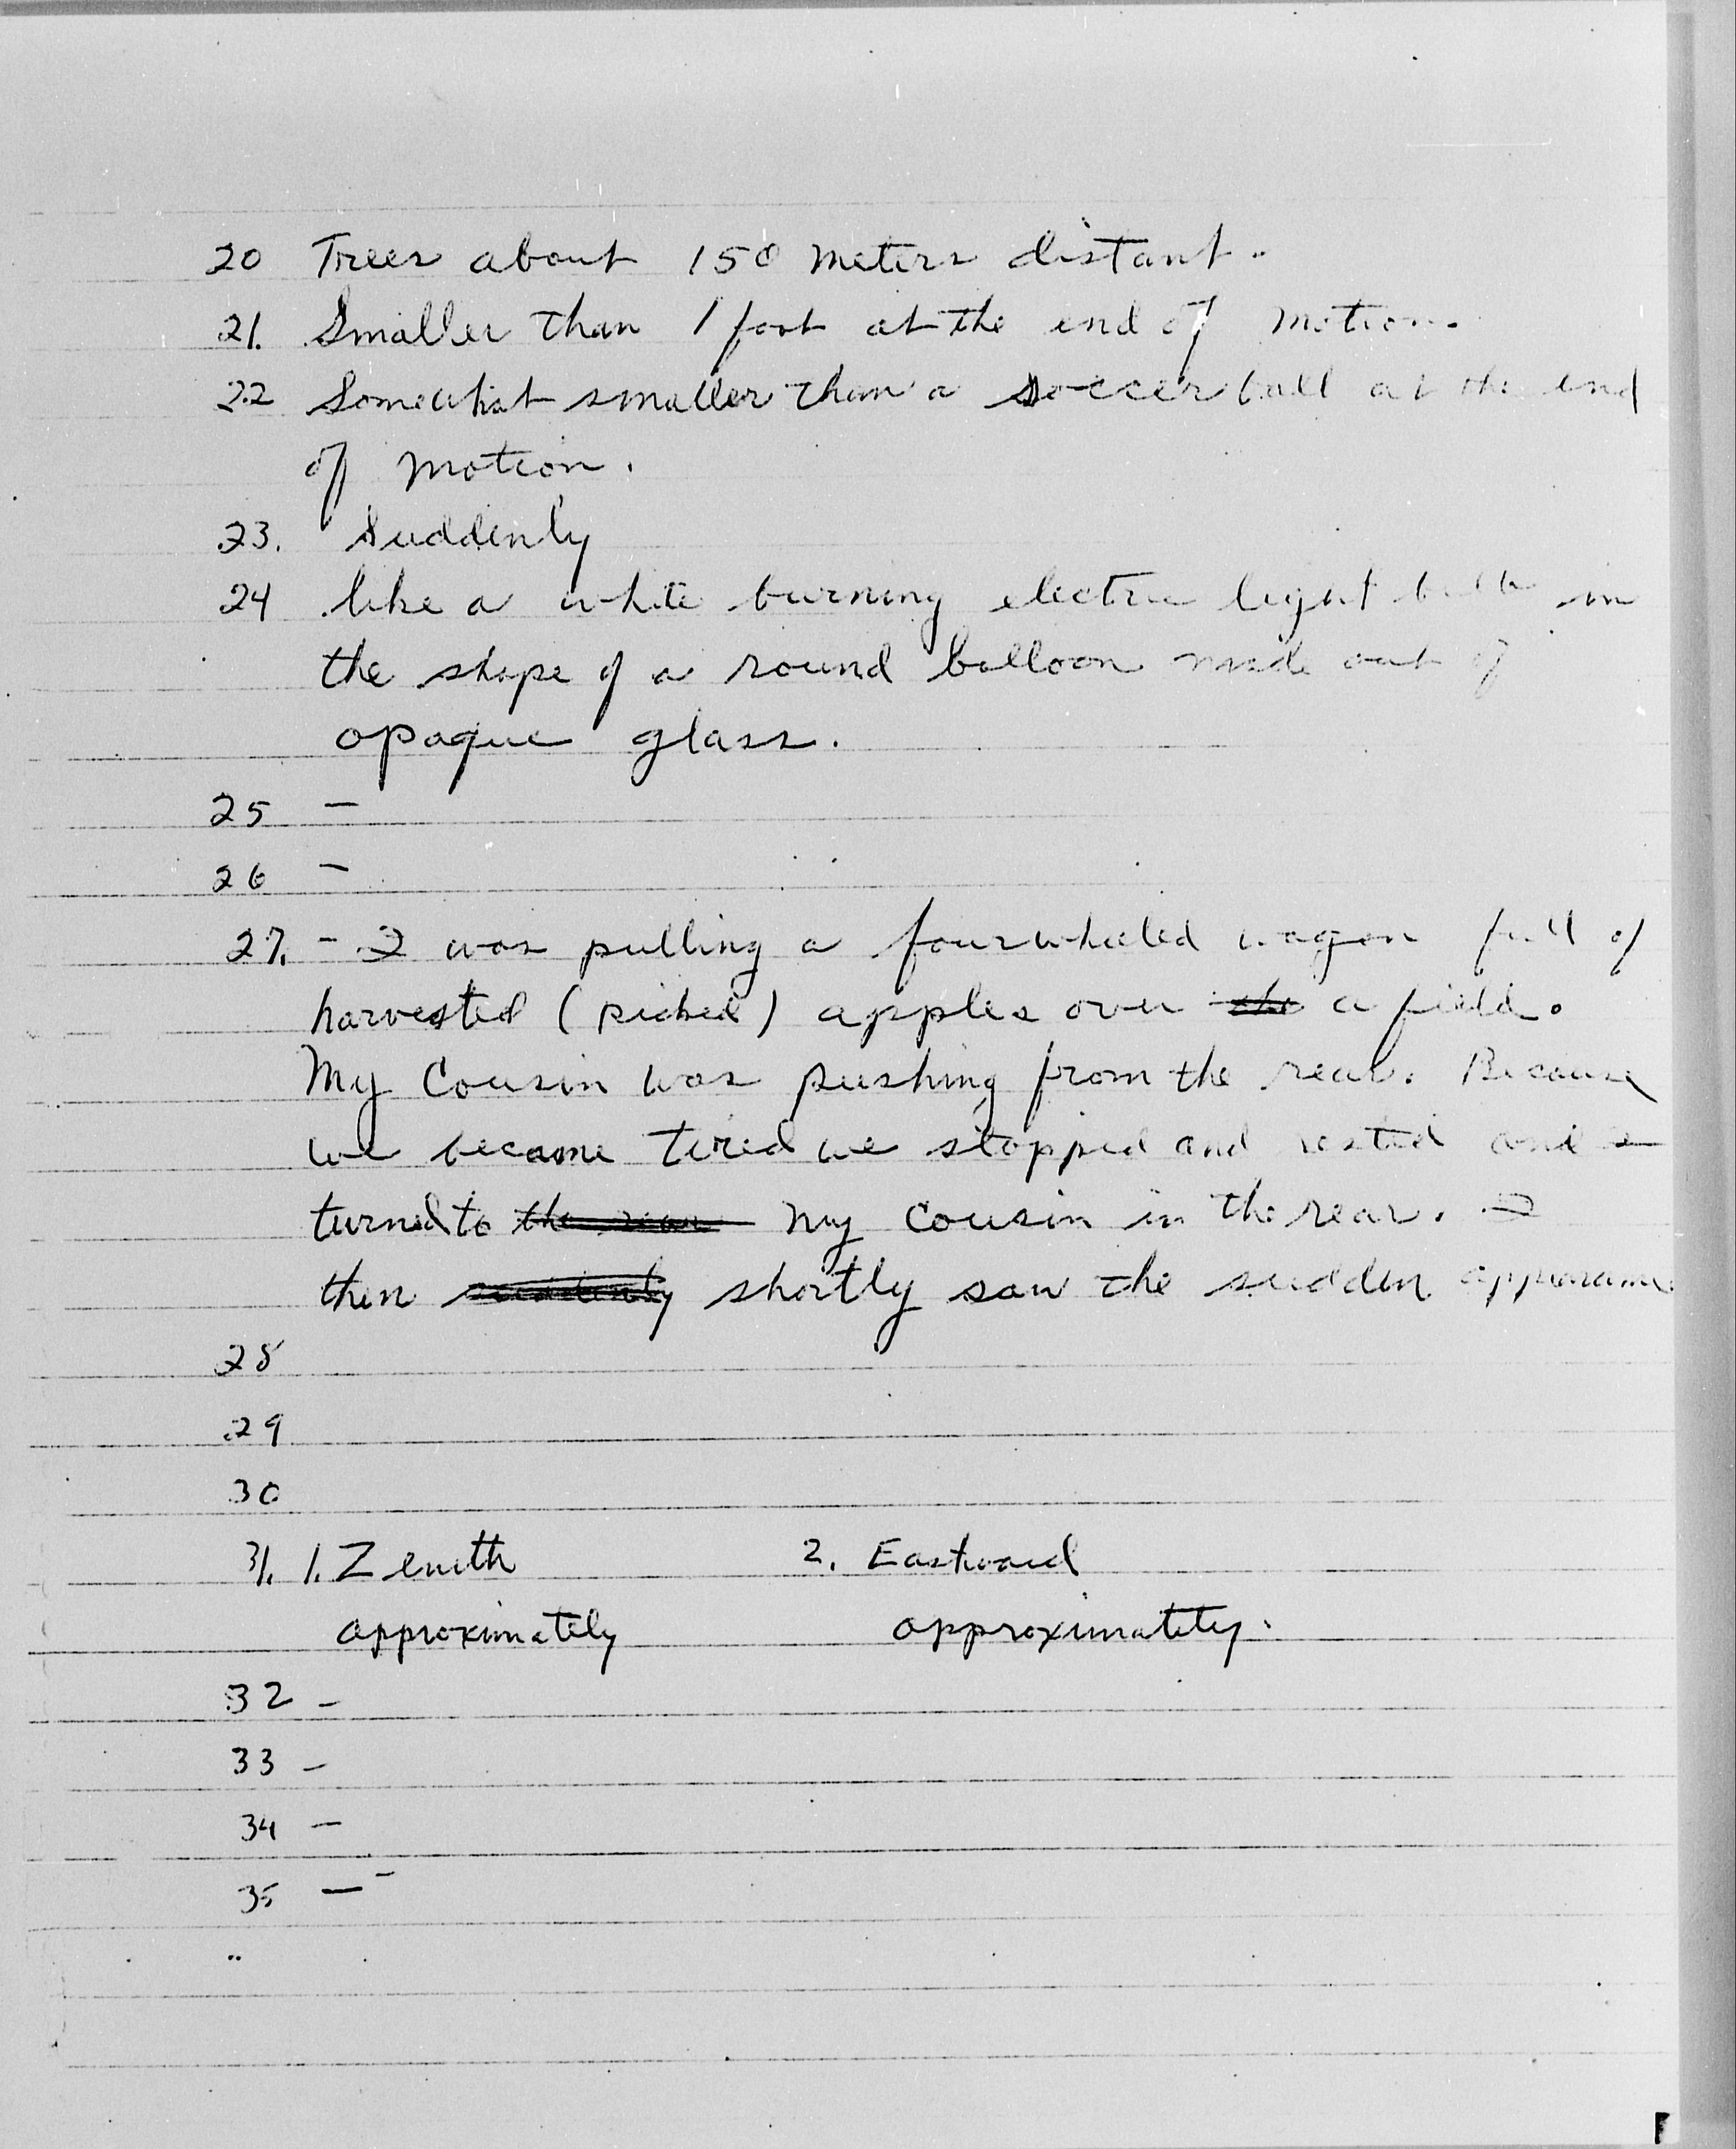 20 Trees about 150 meters distant.
21. Smaller than 1 foot at the end of motion.
22 Somewhat smaller than a soccer ball at the end
of motion.
23. Suddenly
24 like a white burning electric light bulb in
the shape of a round balloon made out of
opaque glass.
25 —
26 —
27. - I was pulling a fourwheeled wagon full of
harvested (picked) apples over the a field.
My Cousin was pushing from the rear. Because
we became tired we stopped and rested and I
turned to the rear my cousin in the rear. I
then suddenly shortly saw the sudden appearance
28
29
30
31. 1. Zenith 2. Eastward
approximately approximately.
32 -
33 -
34 -
35 —